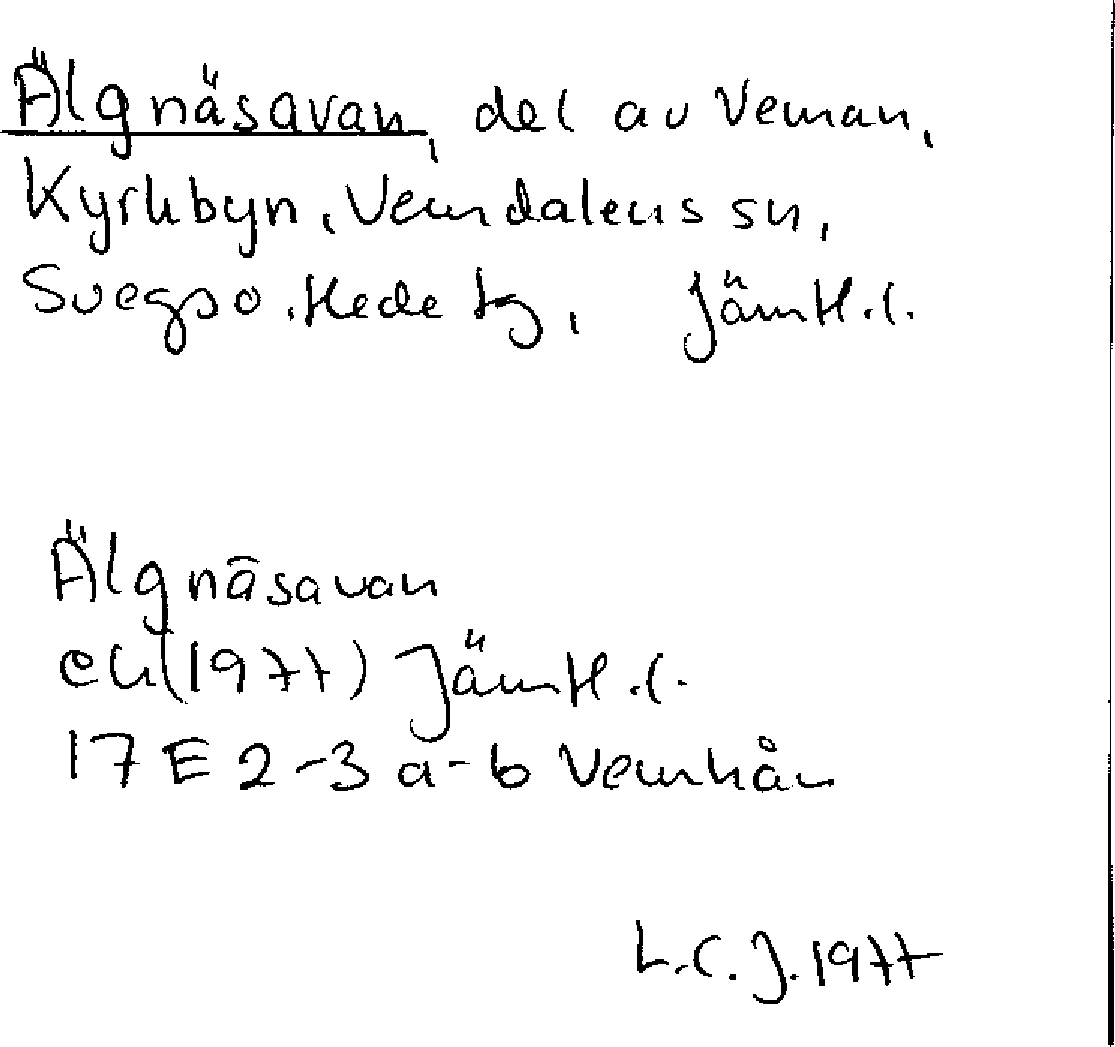 Älgnäsavan, del av Veman,
Kyrkbyn, Vemdalens sn,
Svegs o. Hede tg, Jämtl. l.
Älgnäsavan
ek (1977) Jämtl. l.
17 E 2-3 a-b Vemhån
L.C.J. 1977